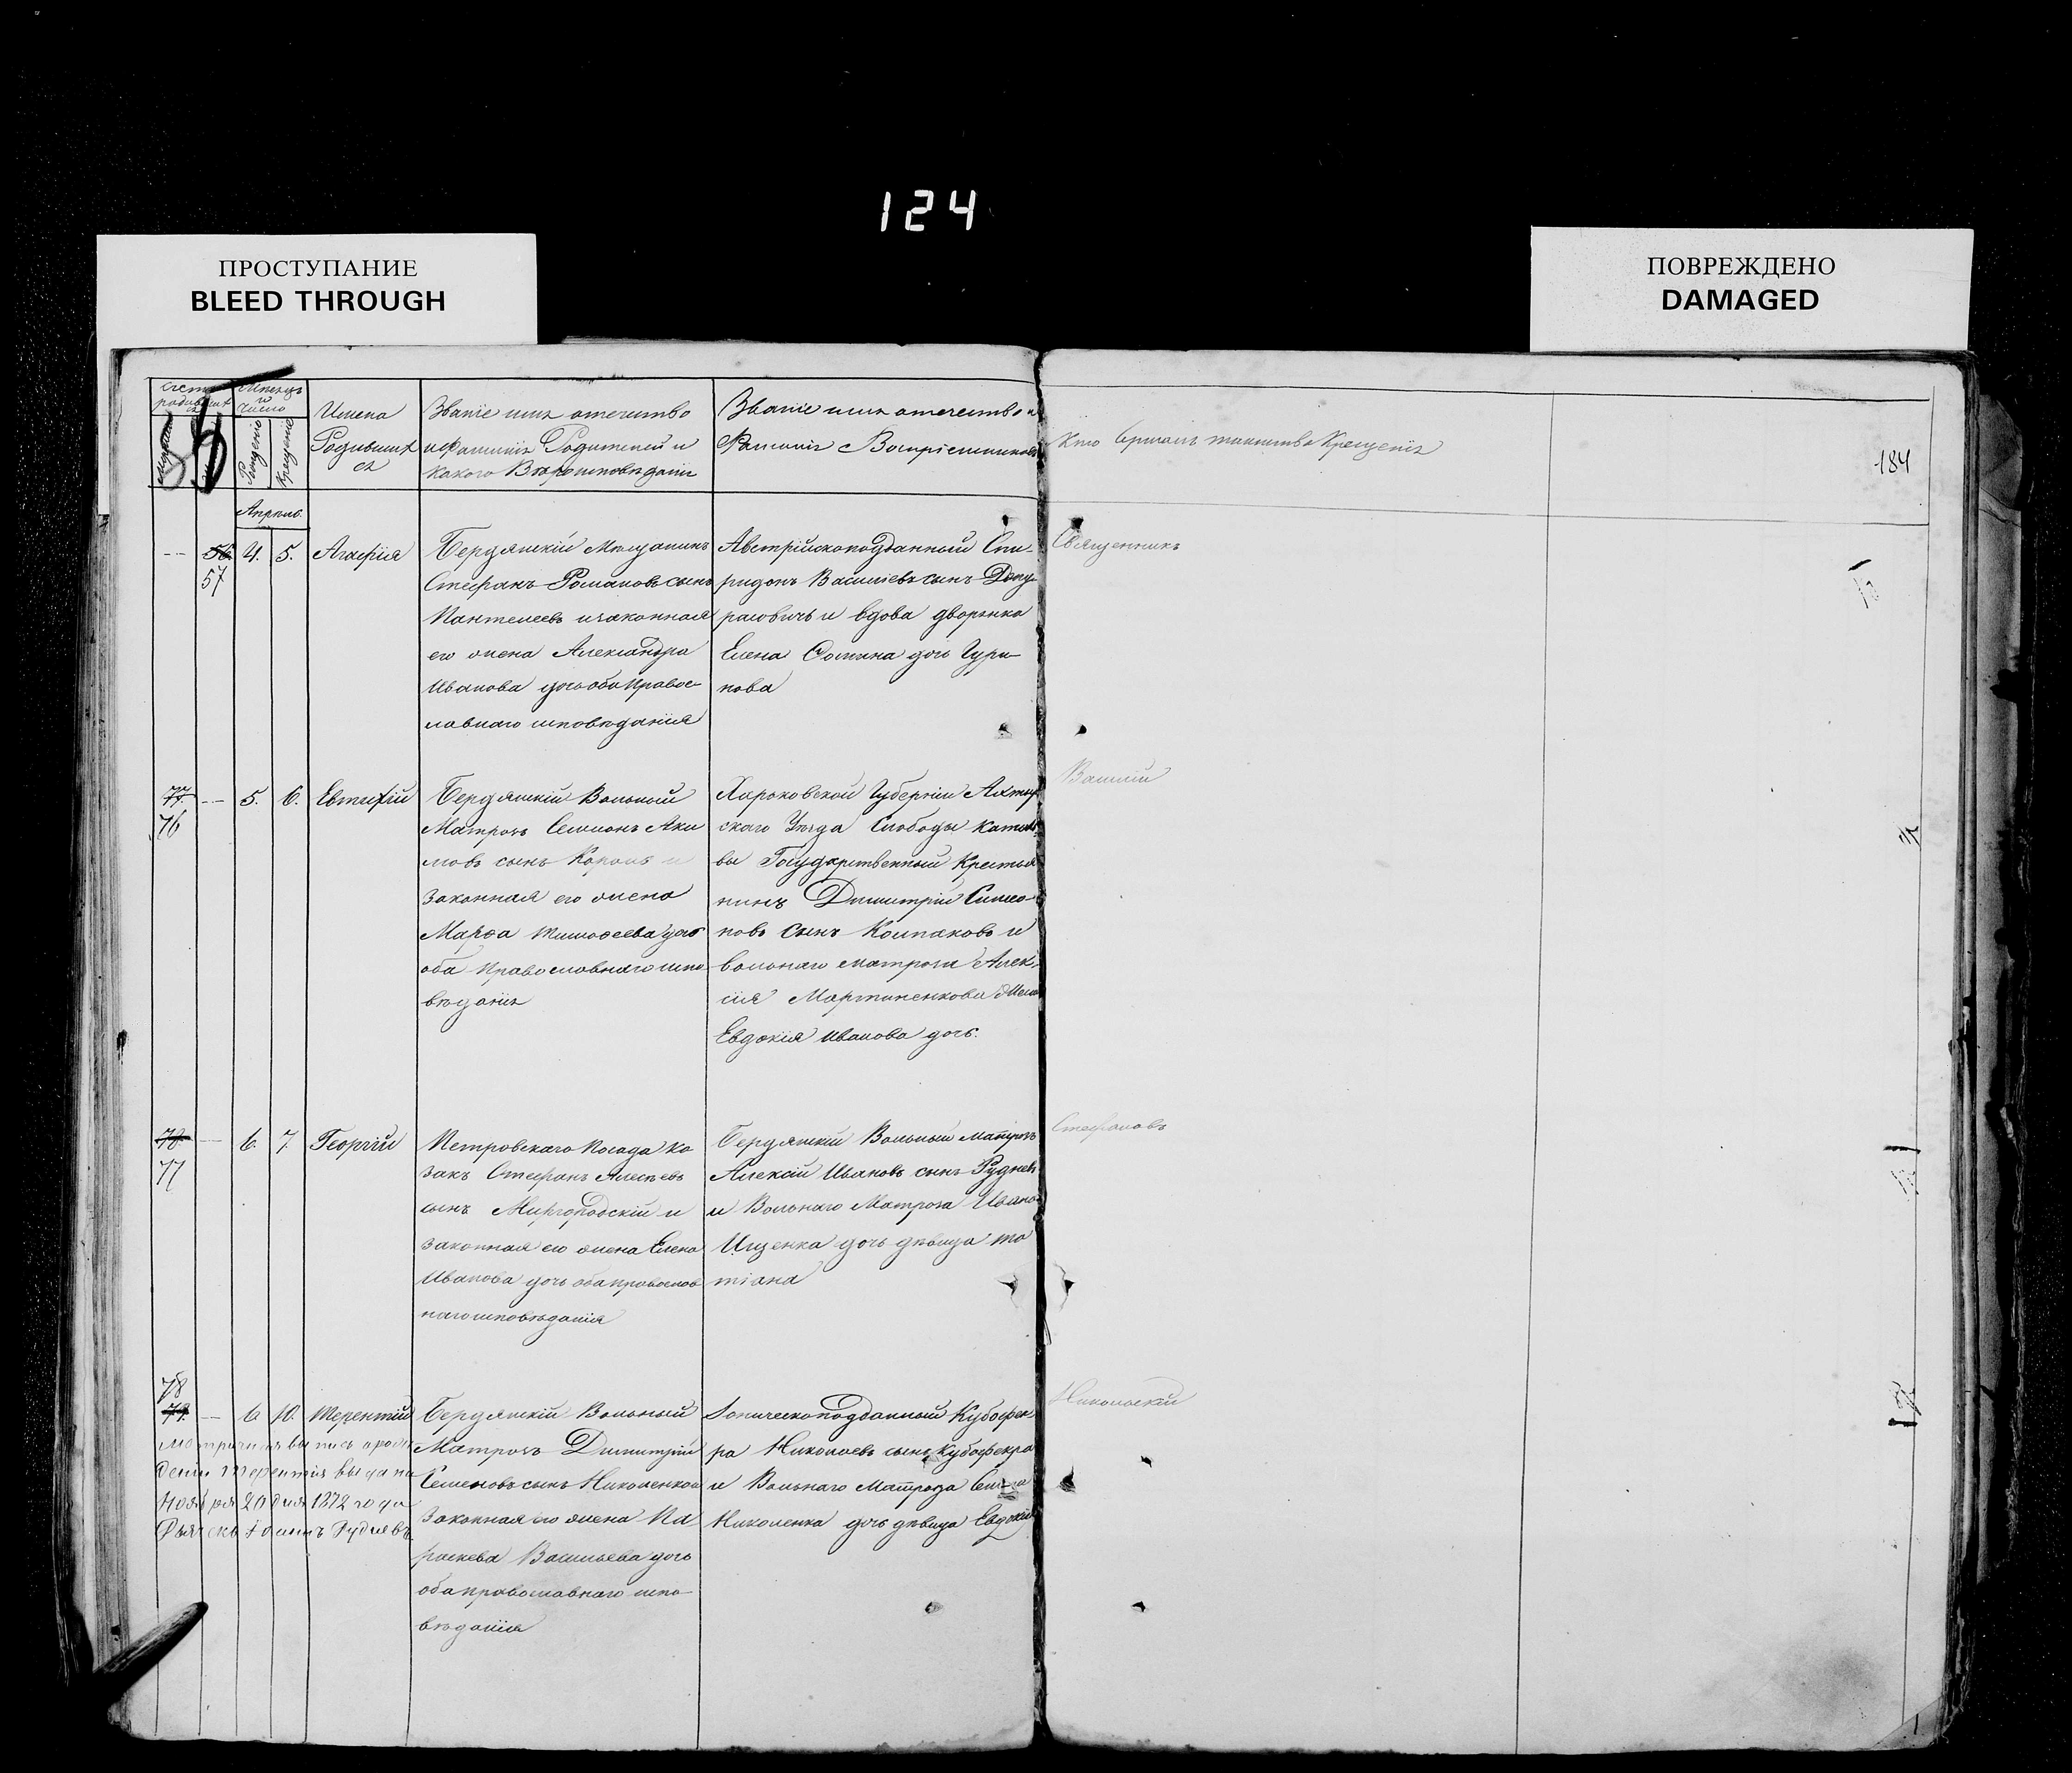 124
ПРОСТУПАНИЕ
BLEED THROUGH
ПОВРЕЖДЕНО
DAMAGED
Счетъ родившихся
Мѣсяцъ и число
Рожденія
Крещенія
Имена
Родивших
ся
Званіе имя отечество
и фамилія Родителей и
какого Вѣроисповѣданія
Званіе имя отечество и
Фамилія Воспріемниковъ
Кто совершалъ таинство Крещенія
184
Апрѣль.
56
57
4.
5.
Агафія
Бердянскій Мѣщанинъ
Стефанъ Романовъ сынъ
Пантелеевъ и законная
его жена Александра
Иванова дочь оба Правос-
лавнаго исповѣданія
Австрійскоподданный Спи-
ридонъ Василіевъ сынъ
расовичъ и вдова дворянка
Елена дочь Гури-
нова
Священникъ
77.
76
5.
6.
Евтихій
Бердянскій Вольный
Матросъ Семионъ Аки
мовъ сынъ Король и
законная его жена
Марѳа Тимоѳеева дочь
оба Православнаго испо
вѣданія
Харьковской Губерніи Ахтыр
скаго Уѣзда Слободы Котель
вы Государственный Крестья
нинъ Димитрій Симео-
новъ сынъ Колпаковъ и
вольнаго матроса Алек-
сія Мартиненкова жена
Евдокія Иванова дочь.
Василій
78.
77
6.
7.
Георгій
Петровскаго Посада ка
закъ Стефанъ Алексѣевъ
сынъ Миргородскій и
законная его жена Елена
Иванова дочь оба православ
наго исповѣданія
Бердянскій Вольный матросъ
Алексій Ивановъ сынъ Рудневъ
и Вольнаго Матроса Ивана
Ищенка дочь дѣвица та
тіана
Стефановъ
78
79.
6
10.
Терентій
Бердянскій Вольный
Матросъ Димитрій
Семеновъ сынъ Николенко и
Законная его жена Па
раскева Васильева дочь
оба православнаго испо-
вѣданія
Іоническоподданный Кубофек
ра Николаевъ сынъ Кубофекра
и Вольнаго Матроса
Николенка дочь дѣвица Евдокія
Никольскій
Метрическая выпись о рож
деніи Терентія выдана
Ноября 20 дня 1872 года
Дьячекъ Іоаннъ Рудневъ